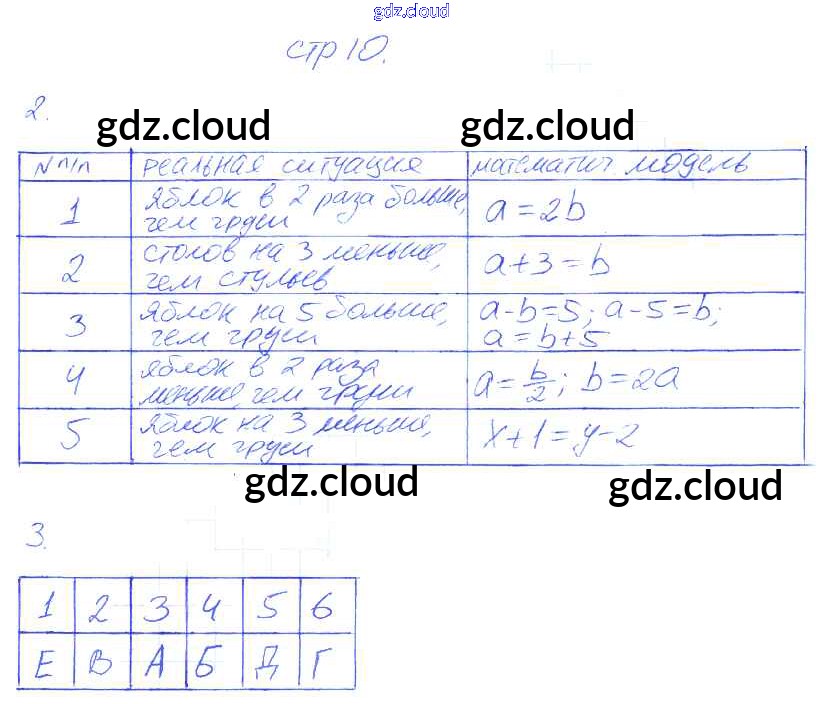 gdz.cloud
стр 10.
2.
gdz.cloud gdz.cloud
N п/п реальная ситуация математич. модель
1 яблок в 2 раза больше, чем груш a=2b
2 столов на 3 меньше, чем стульев a+3=b
3 яблок на 5 больше, чем груш a-b=5; a-5=b; a=b+5
4 яблок в 2 раза меньше, чем груш a=b/2; b=2a
5 яблок на 3 меньше, чем груш x+1=y-2
gdz.cloud gdz.cloud
3.
1 2 3 4 5 6
Е В А Б Д Г